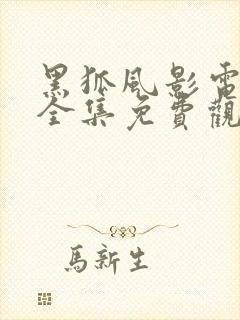 黑狐風影電
全集免費觀
馬新生